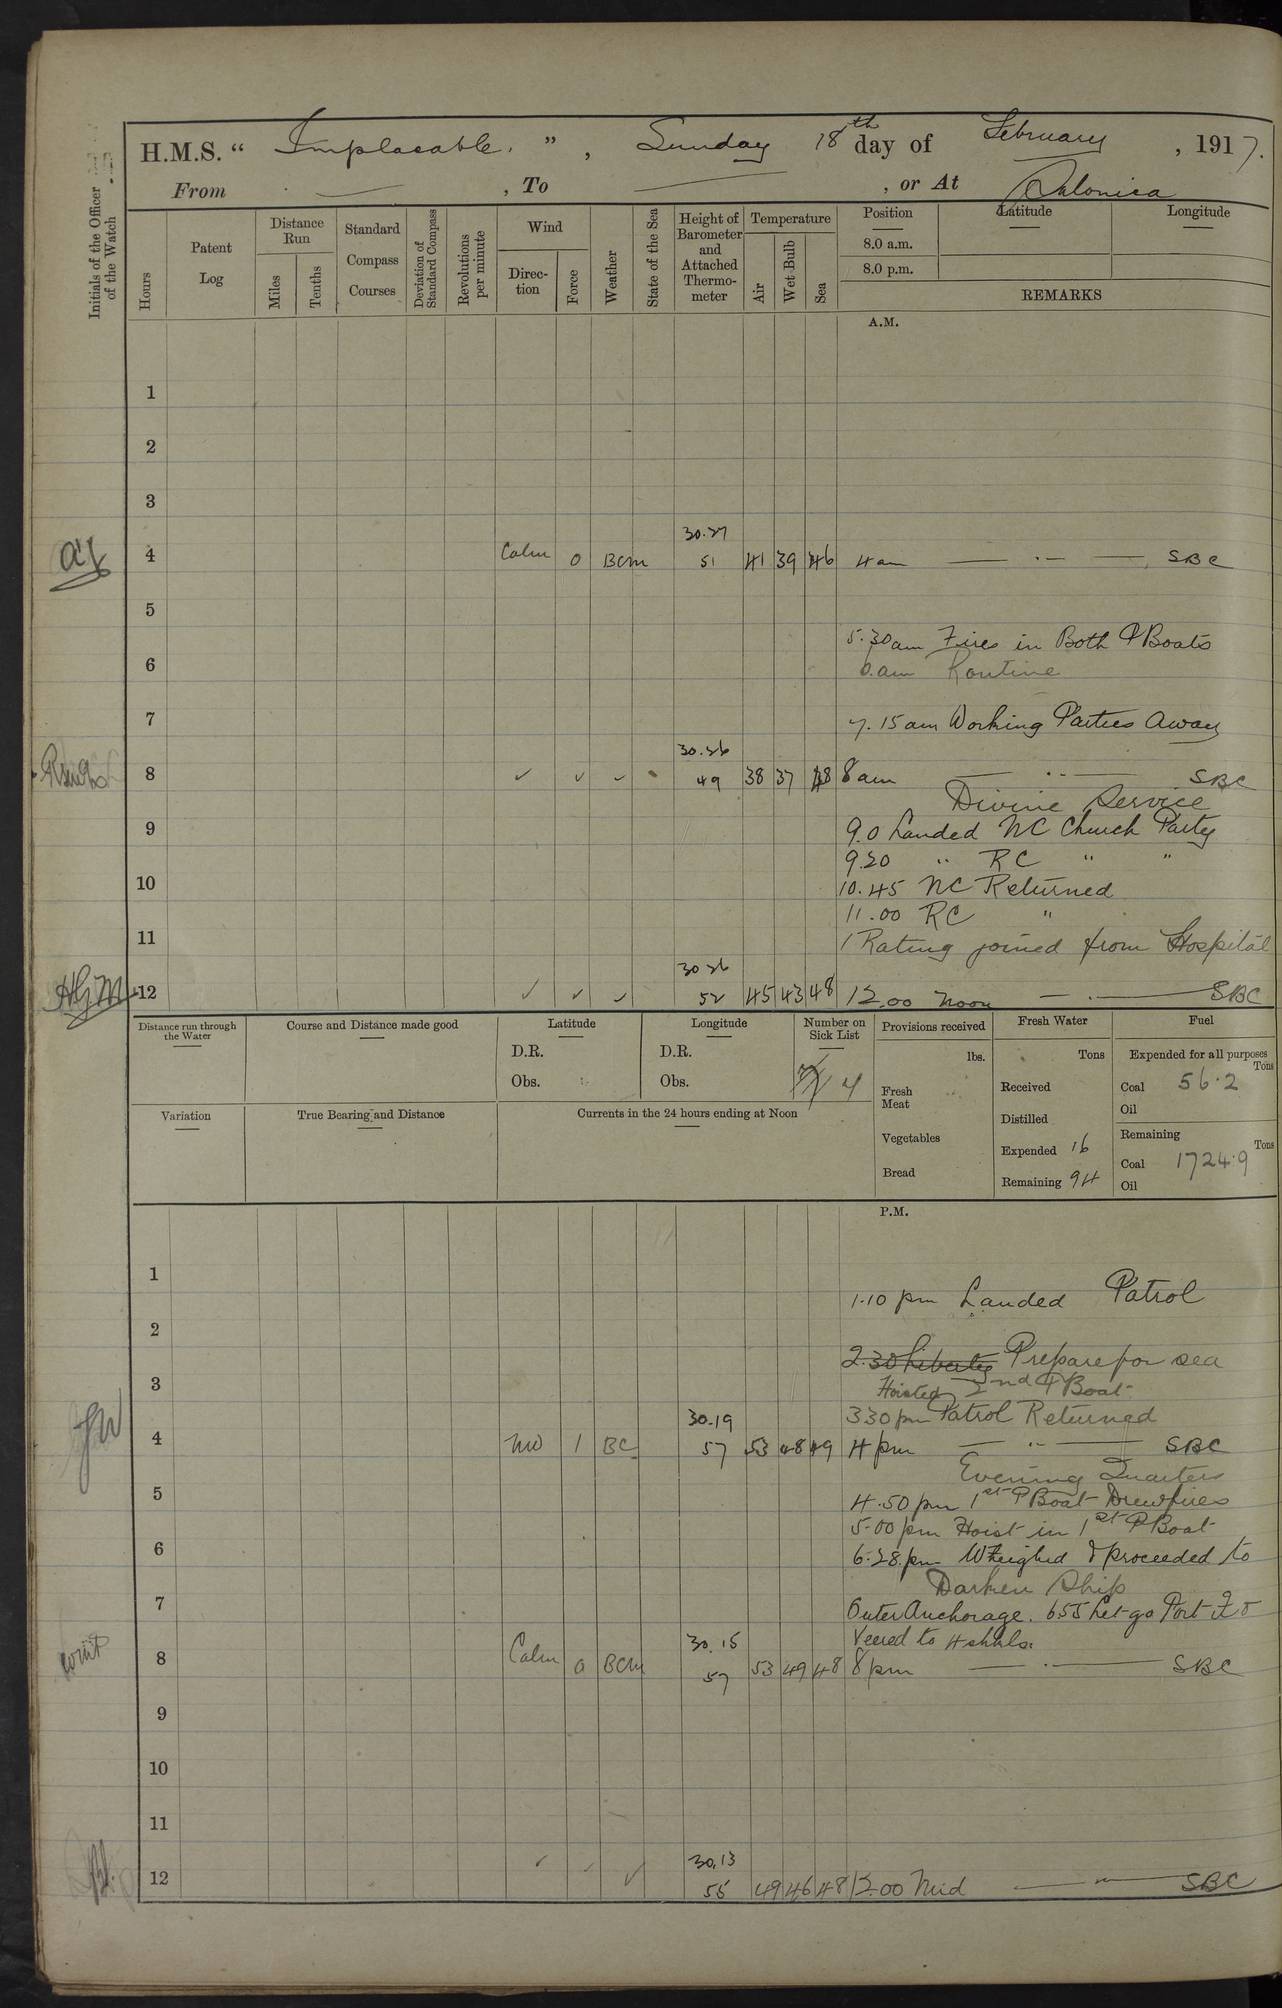 H.M.S. “ Implacable. ” , Sunday 18th day of February , 1917.
From — , To — , or At Salonica
Initials of the Officer of the Watch
Hours
Patent Log
Distance Run
Miles
Tenths
Standard Compass Courses
Deviation of Standard Compass
Revolutions per minute
Wind
Direc-tion
Force
Weather
State of the Sea
Height of Barometer and Attached Thermo-meter
Temperature
Air
Wet Bulb
Sea
Position
8.0 a.m.
8.0 p.m.
Latitude
Longitude
REMARKS
A.M.
1
2
3
30.27
4 Calm 0 BCM 51 41 39 46 4 am — · — — SBC
5
5.30 am Fires in Both P Boats
6
6. am Routine
7
7.15 am Working Parties Away
30.26
8 ✓ ✓ ✓ 49 38 37 48 8 am — · · — SBC
Divine Service
9
9.0 Landed NC Church Party
9.20 " RC " "
10
10.45 NC Returned
11.00 RC "
11
1 Rating joined from Hospital
30 26
HGM 12 ✓ ✓ ✓ 52 45 43 48 12.00 Noon — · — SBC
Distance run through the Water
Course and Distance made good
Latitude
D.R.
Obs.
Longitude
D.R.
Obs.
Number on Sick List
4
Provisions received
lbs.
Fresh Meat
Vegetables
Bread
Fresh Water
Tons
Received
Distilled
Expended 16
Remaining 94
Fuel
Expended for all purposes
Tons
Coal 56.2
Oil
Remaining
Tons
Coal 1724.9
Oil
Variation
True Bearing and Distance
Currents in the 24 hours ending at Noon
P.M.
1
1.10 pm Landed Patrol
2
2.30 Liberty Prepare for sea
3
Hoisted 2nd P Boat
30.19
3 30 pm Patrol Returned
4 NW 1 BC 57 53 48 49 4 pm — · · — SBC
Evening Quarters
5
4.50 pm 1st P Boat Drew fires
5.00 pm Hoist in 1st P Boat
6
6.28. pm Weighed & proceeded to
Darken Ship
7
Outer Anchorage. 6 55 Let go Port
30.15
Veered to 4 shkls.
8 Calm 0 BCM 57 53 49 48 8 pm — · — SBC
9
10
11
30.13
12 ✓ ✓ ✓ 55 49 46 48 12.00 Mid — " — SBC